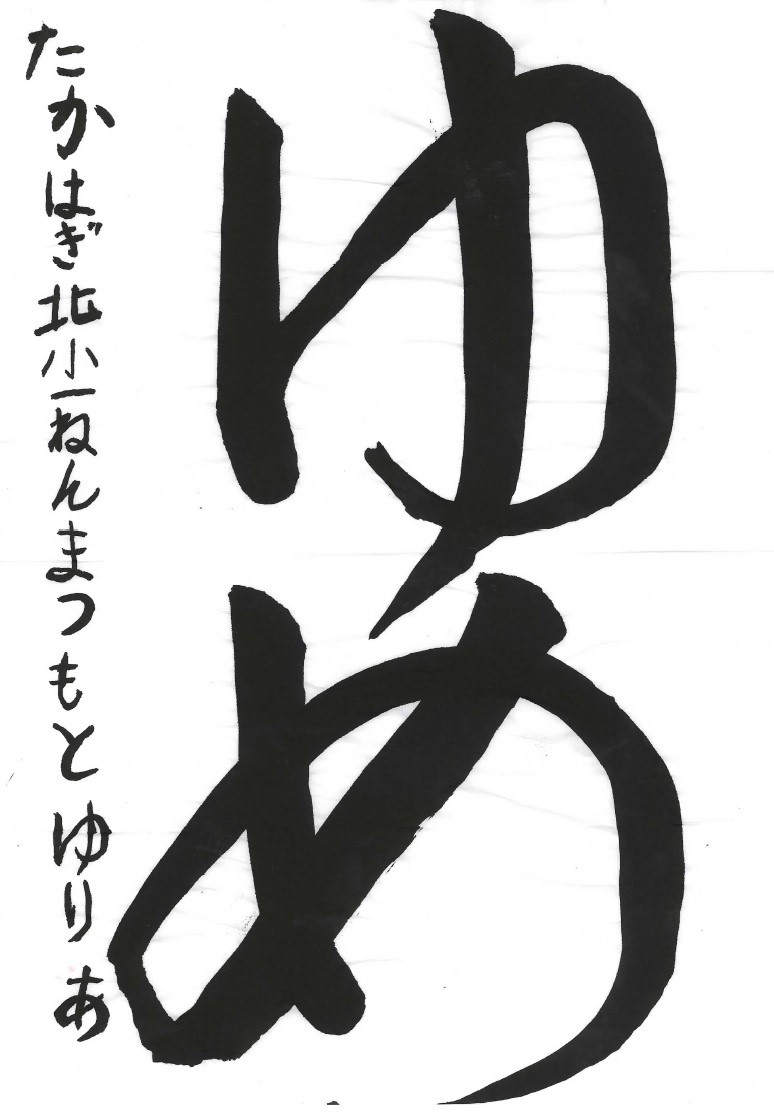 ゆめ
たかはぎ北小一ねんまつもとゆりあ